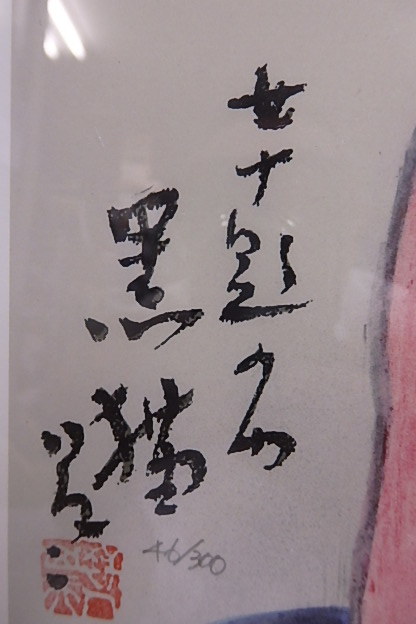 女十題の内
黒猫
46/300